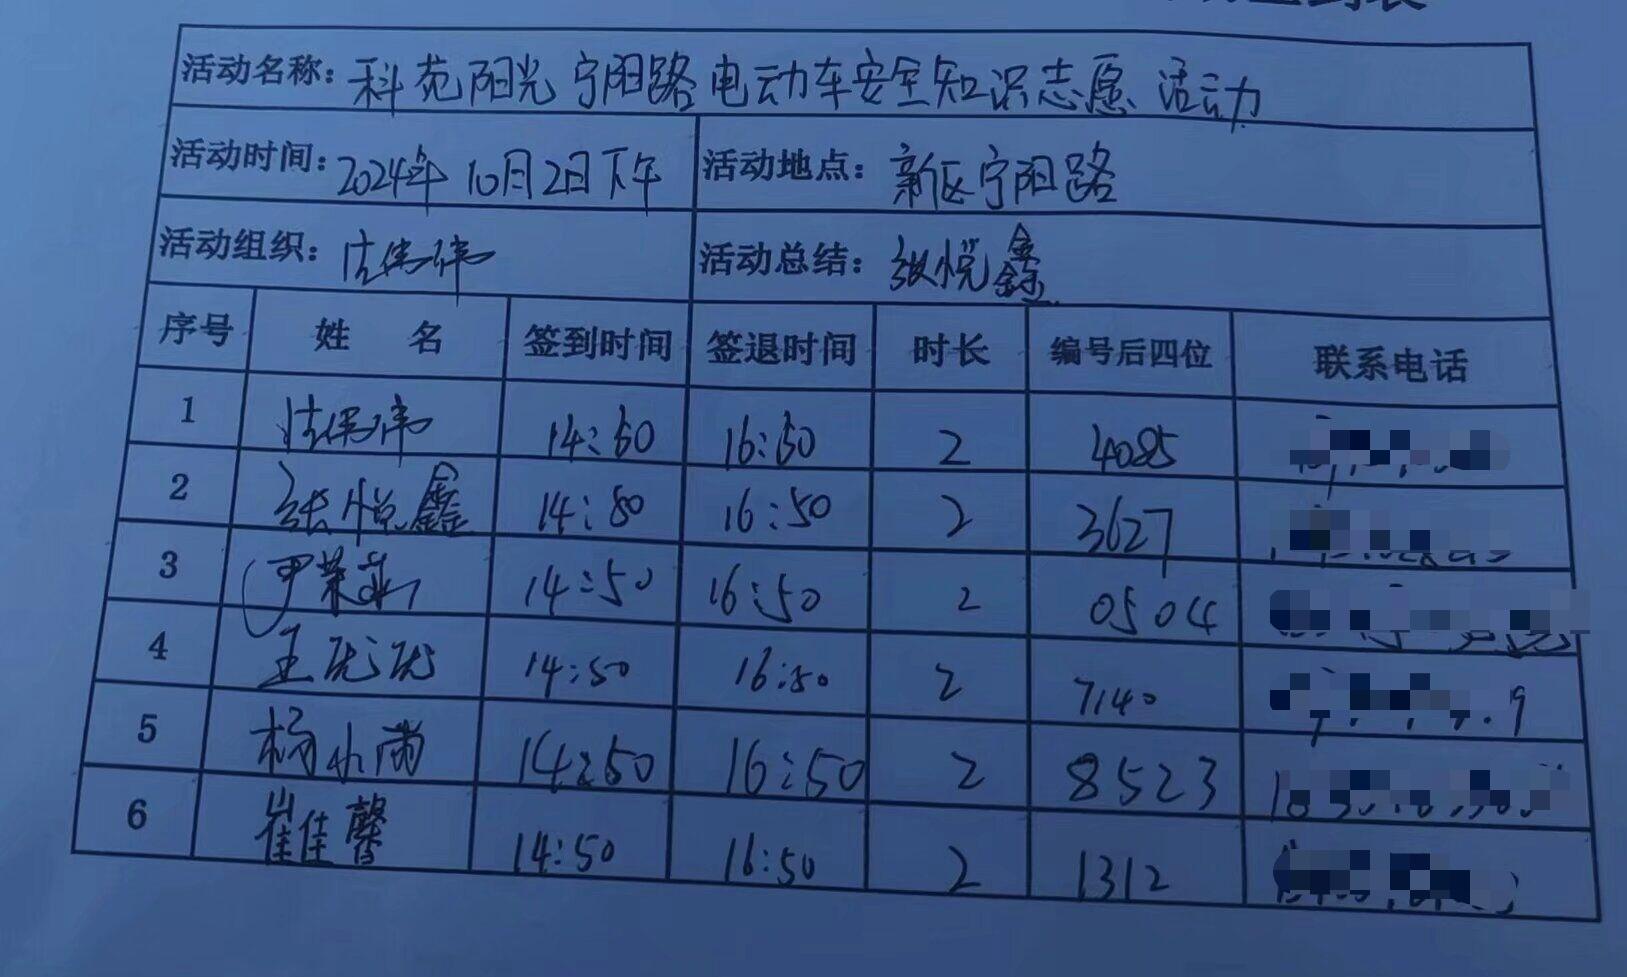 活动名称：科苑阳光宁阳路电动车安全知识志愿活动
活动时间：2024年10月2日下午 活动地点：新区宁阳路
活动组织： 活动总结：张悦鑫
序号 姓名 签到时间 签退时间 时长 编号后四位 联系电话
1 14:50 16:50 2 4085
2 张悦鑫 14:50 16:50 2 3627
3 14:50 16:50 2 0504
4 王 14:50 16:50 2 7140
5 杨 14:50 16:50 2 8523
6 崔佳馨 14:50 16:50 2 1312